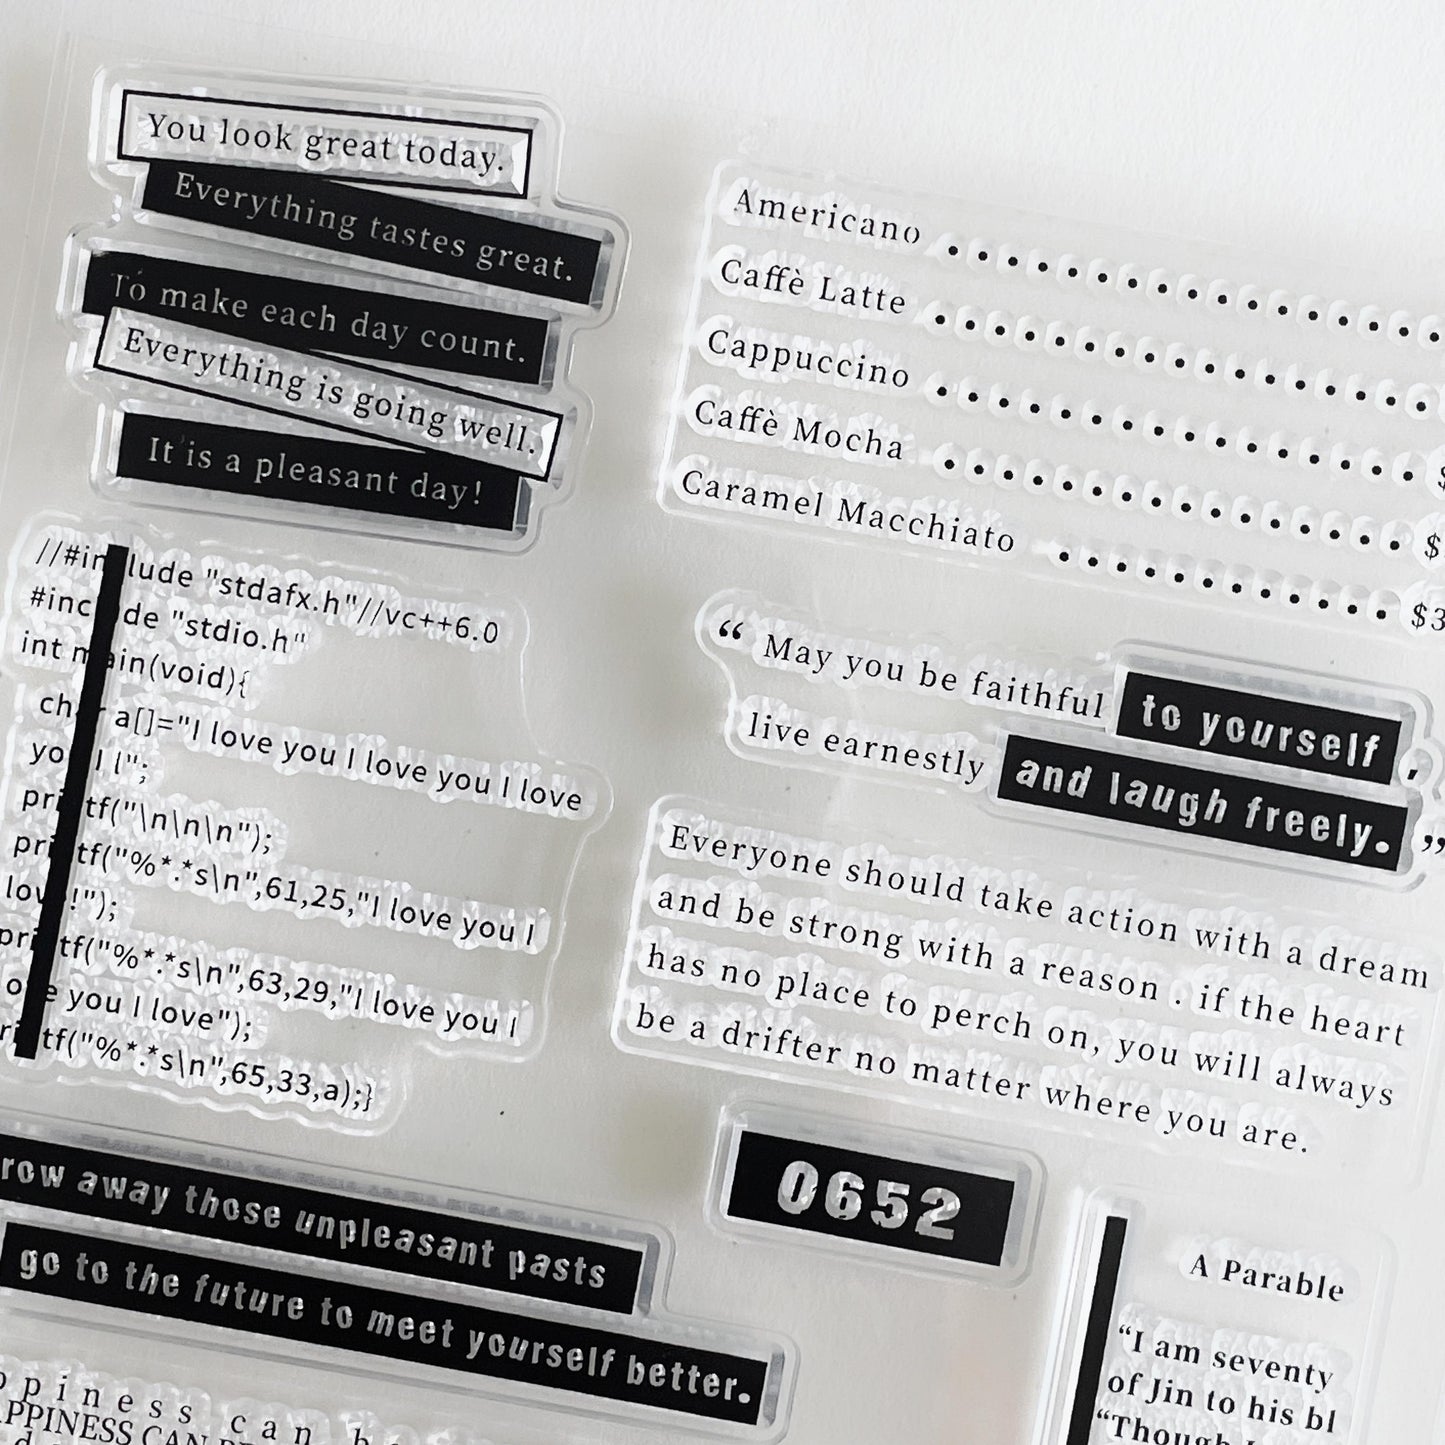 You look great today.
Everything tastes great.
To make each day count.
Everything is going well.
It is a pleasant day!
Americano ..................
Caffè Latte .................
Cappuccino ................. $
Caffè Mocha ................ $
Caramel Macchiato ............ $3
//#include "stdafx.h"//vc++6.0
#include "stdio.h"
int main(void){
char a[]="I love you I love you I love
you I l";
printf("\n\n\n");
printf("%*.*s\n",61,25,"I love you I
love!");
printf("%*.*s\n",63,29,"I love you I
love you I love");
printf("%*.*s\n",65,33,a);}
“ May you be faithful to yourself ,
live earnestly and laugh freely. ”
Everyone should take action with a dream
and be strong with a reason . if the heart
has no place to perch on, you will always
be a drifter no matter where you are.
0652
row away those unpleasant pasts
go to the future to meet yourself better.
ppiness can b
APPINESS CAN BE
A Parable
“I am seventy
of Jin to his bl
“Though